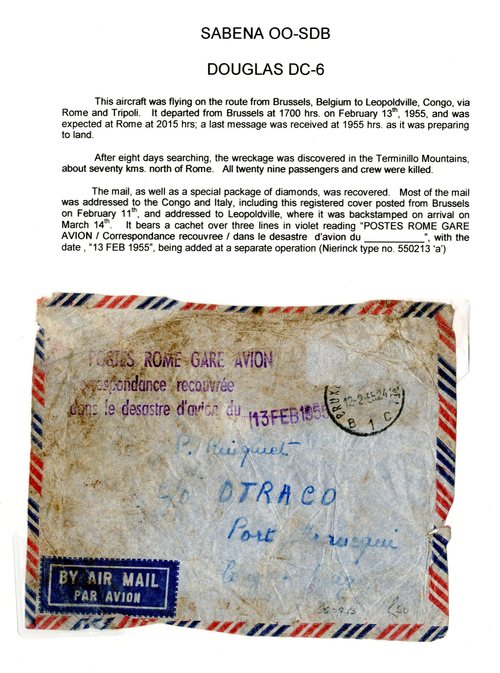 SABENA OO-SDB
DOUGLAS DC-6
This aircraft was flying on the route from Brussels, Belgium to Leopoldville, Congo, via
Rome and Tripoli. It departed from Brussels at 1700 hrs. on February 13th, 1955, and was
expected at Rome at 2015 hrs; a last message was received at 1955 hrs. as it was preparing
to land.
After eight days searching, the wreckage was discovered in the Terminillo Mountains,
about seventy kms. north of Rome. All twenty nine passengers and crew were killed.
The mail, as well as a special package of diamonds, was recovered. Most of the mail
was addressed to the Congo and Italy, including this registered cover posted from Brussels
on February 11th, and addressed to Leopoldville, where it was backstamped on arrival on
March 14th. It bears a cachet over three lines in violet reading "POSTES ROME GARE
AVION / Correspondance recouvree / dans le desastre d'avion du __________", with the
date , "13 FEB 1955", being added at a separate operation (Nierinck type no. 550213 'a')
POSTES ROME-GARE AVION
respondance recouvrée
dans le desastre d'avion du 13 FEB 1955
B 1 C
OTRACO
Port
BY AIR MAIL
PAR AVION